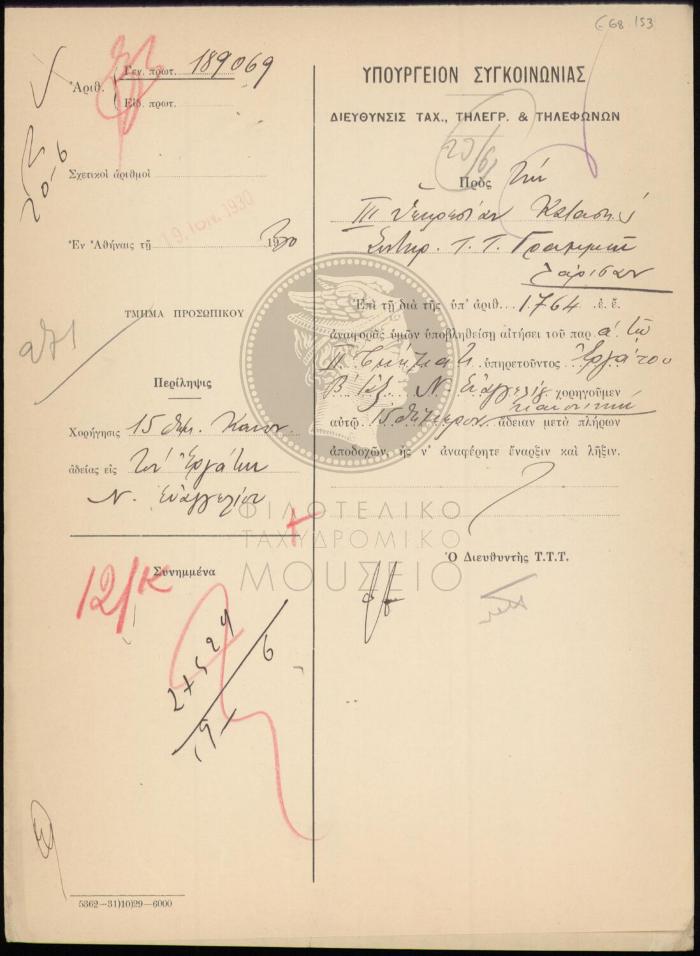 668 153
Ἀριθ.
Γεν. πρωτ. 189069
Εἰδ. πρωτ.
20-6
Σχετικοὶ ἀριθμοὶ
19. ΙΟΥΝ. 1930
Ἐν Ἀθήναις τῇ 1930
ΤΜΗΜΑ ΠΡΟΣΩΠΙΚΟΥ
Περίληψις
Χορήγησις 15 θημ. Κανον.
ἀδείας εἰς τὸν Ἐργάτην
Ν. Εὐαγγελίου
Συνημμένα
12/Κ
27529
6
5362—31)10)29—6000
ΥΠΟΥΡΓΕΙΟΝ ΣΥΓΚΟΙΝΩΝΙΑΣ
ΔΙΕΥΘΥΝΣΙΣ ΤΑΧ., ΤΗΛΕΓΡ. & ΤΗΛΕΦΩΝΩΝ
Πρὸς τὴν
ΙΙΙ Ὑπηρεσίαν Κατασκ. &
Συντηρ. Τ.Τ. Γραμμῶν
Λάρισαν
Ἐπὶ τῇ διὰ τῆς ὑπ' ἀριθ. 1764 ἐ. ἔ.
ἀναφορᾶς ὑμῶν ὑποβληθείσῃ αἰτήσει τοῦ παρ
ὑπηρετοῦντος Ἐργάτου
Β' τάξ. Ν. Εὐαγγελίου χορηγοῦμεν
αὐτῷ 15θήμερον κανονικὴν ἄδειαν μετὰ πλήρων
ἀποδοχῶν, ἧς ν' ἀναφέρητε ἔναρξιν καὶ λῆξιν.
Ὁ Διευθυντὴς Τ.Τ.Τ.
ΦΙΛΟΤΕΛΙΚΟ
ΤΑΧΥΔΡΟΜΙΚΟ
ΜΟΥΣΕΙΟ